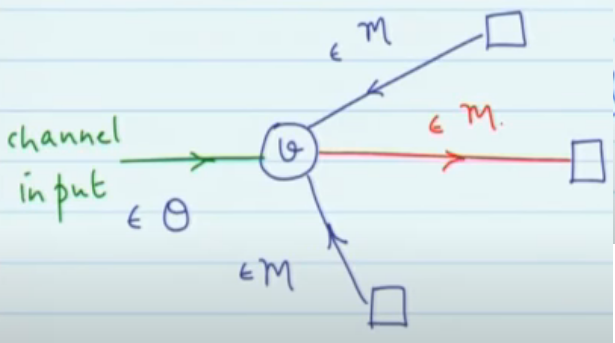 ∈ M
∈ M.
channel
input
v
∈ Θ
∈ M